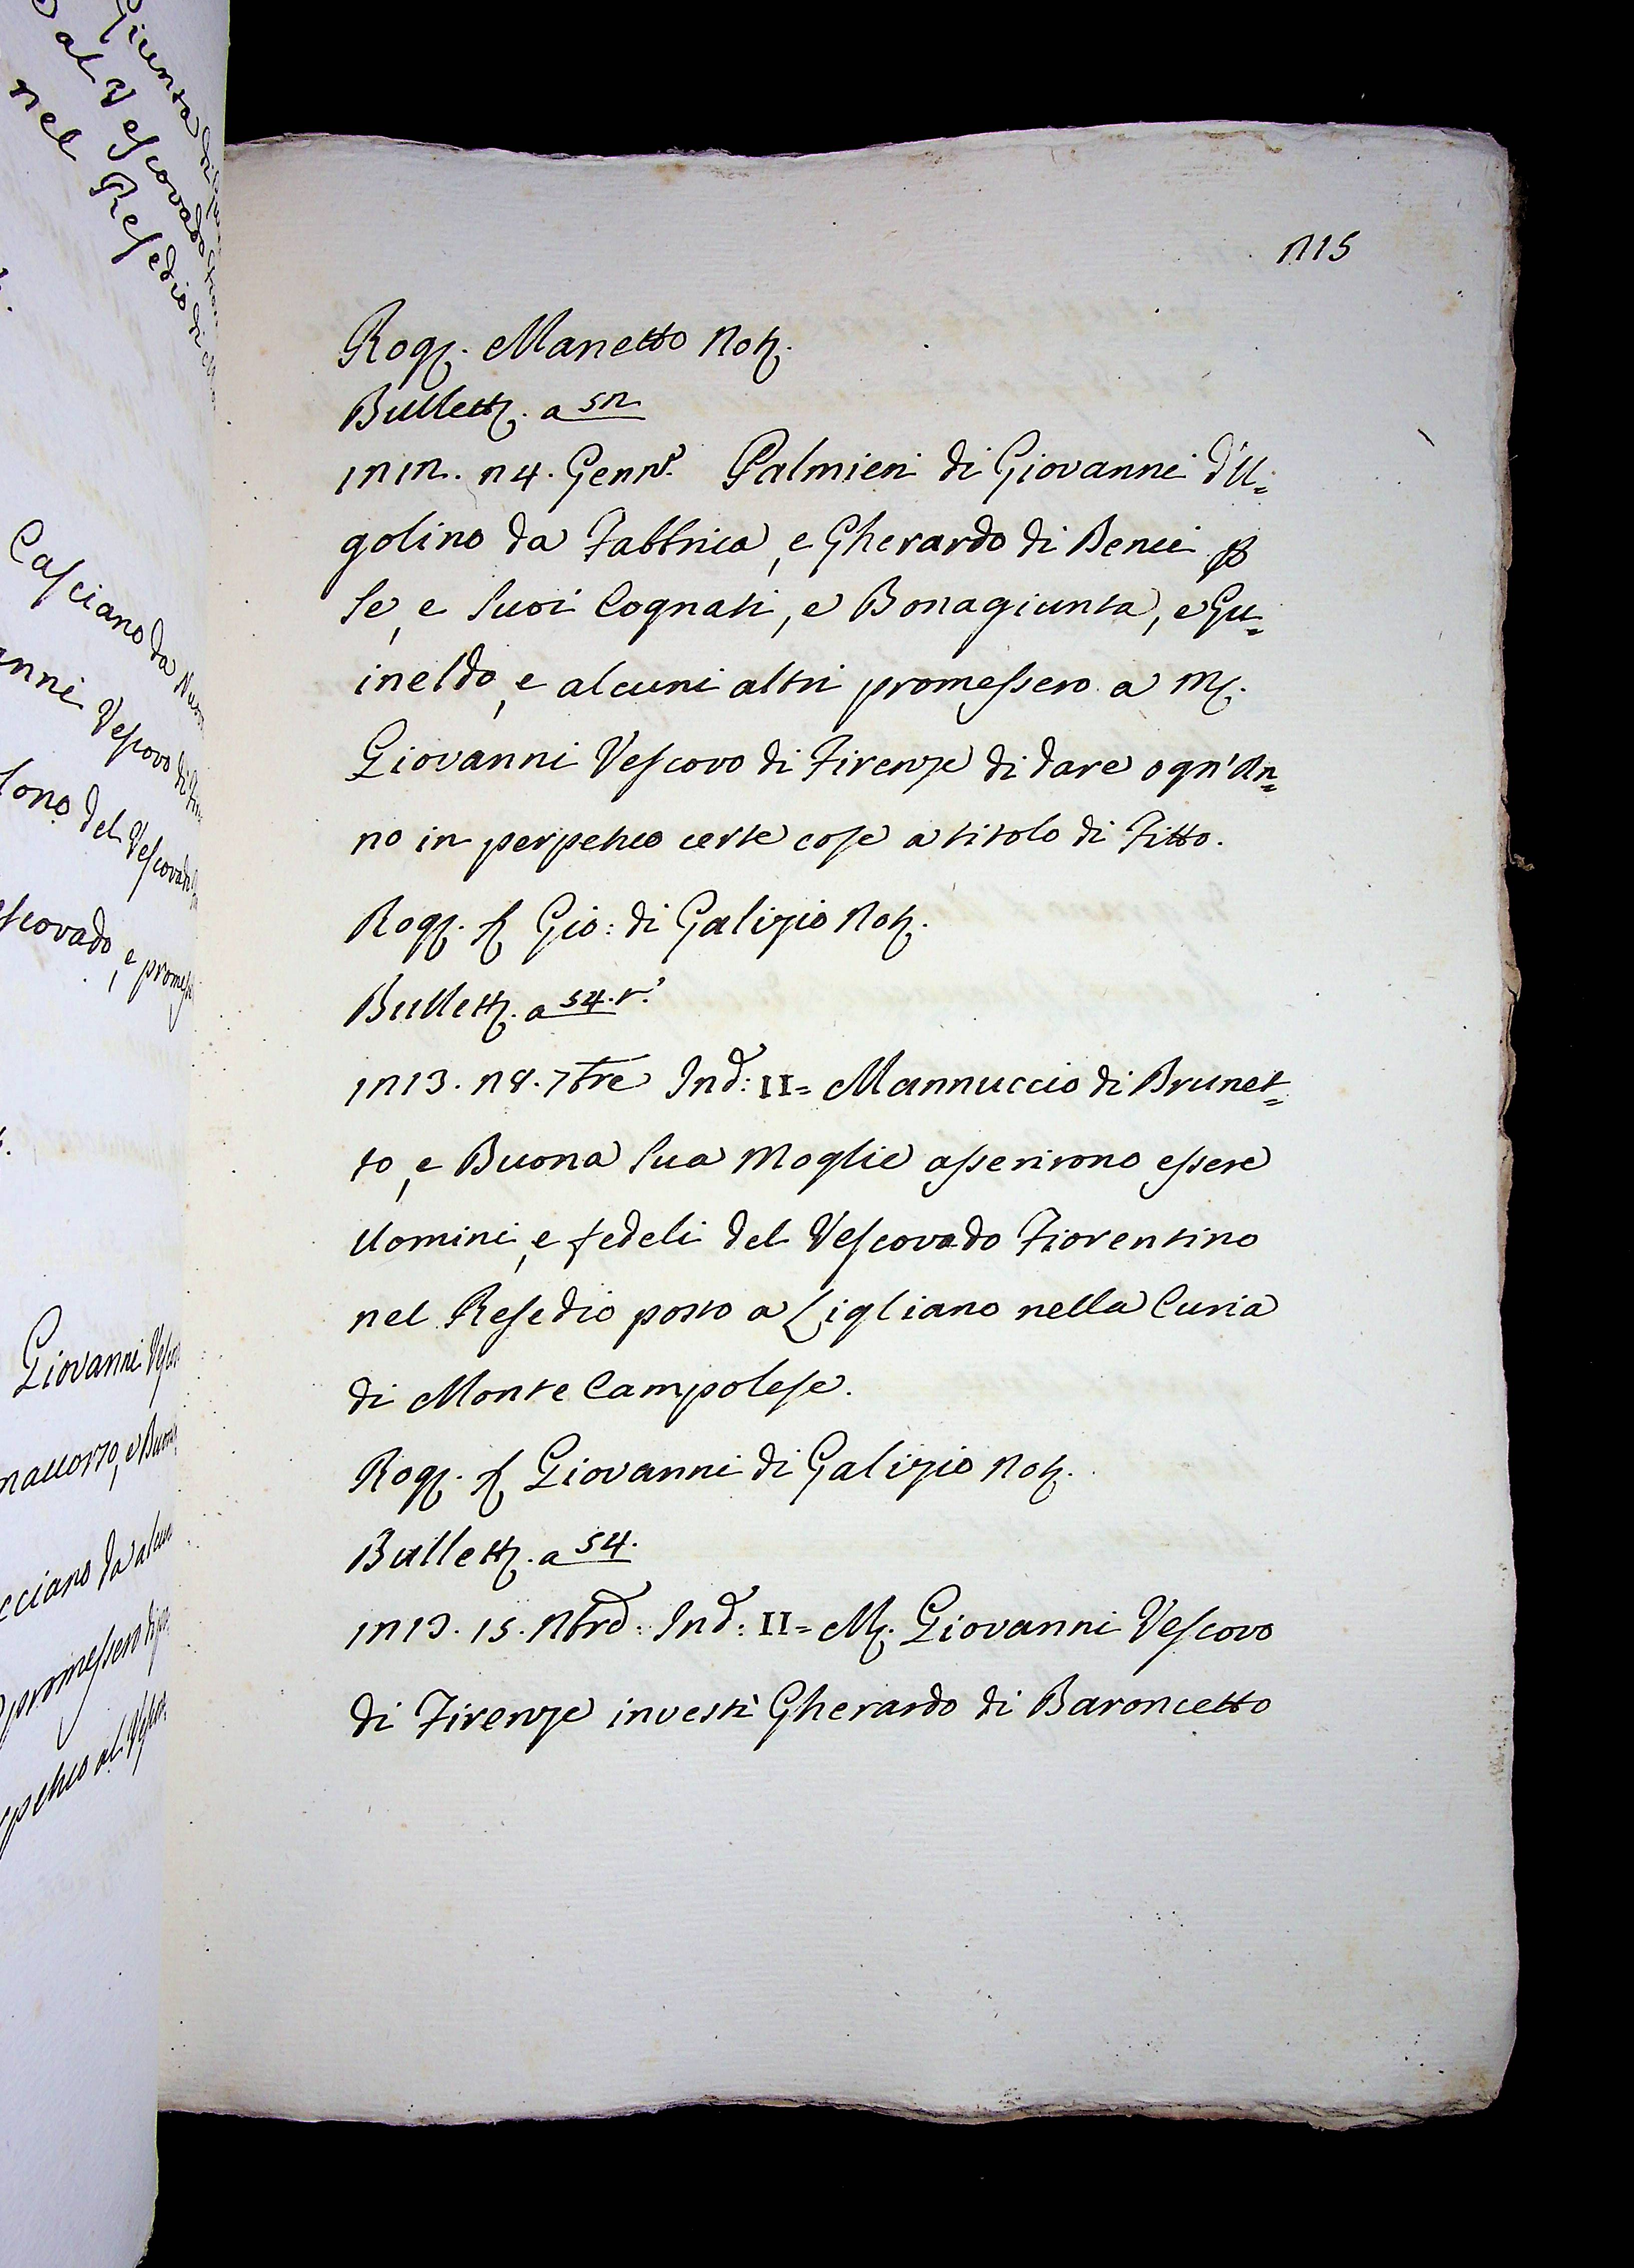 Giunta
al Vescovado
nel Resedio di
Casciano da
anni Vescovo di
del Vescovado
scovado, e promes
Giovanni Vesco
naccorso, e Buon
cciano da alcu
promessero di
rpetuo al Vesco
215
Rog. Manetto Not.
Bullett. a 52
1212. 24. Genn.º Palmieri di Giovanni d'U=
golino da Fabbrica, e Gherardo di Benci p
se, e suoi Cognati, e Bonagiunta, e Gu=
ineldo, e alcuni altri promessero a M.
Giovanni Vescovo di Firenze di dare ogn'An=
no in perpetuo certe cose a titolo di Fitto.
Rog. S. Gio: di Galizio Not.
Bullett. a 54. t.º
1213. 28. 7bre Ind: II= Mannuccio di Brunet=
to, e Buona sua Moglie asserirono essere
Uomini, e fedeli del Vescovado Fiorentino
nel Resedio posto a Ligliano nella Curia
di Monte Campolese.
Rog. S. Giovanni di Galizio Not.
Bullett. a 54.
1213. 15. Nbre: Ind: II= M. Giovanni Vescovo
di Firenze investì Gherardo di Baroncetto